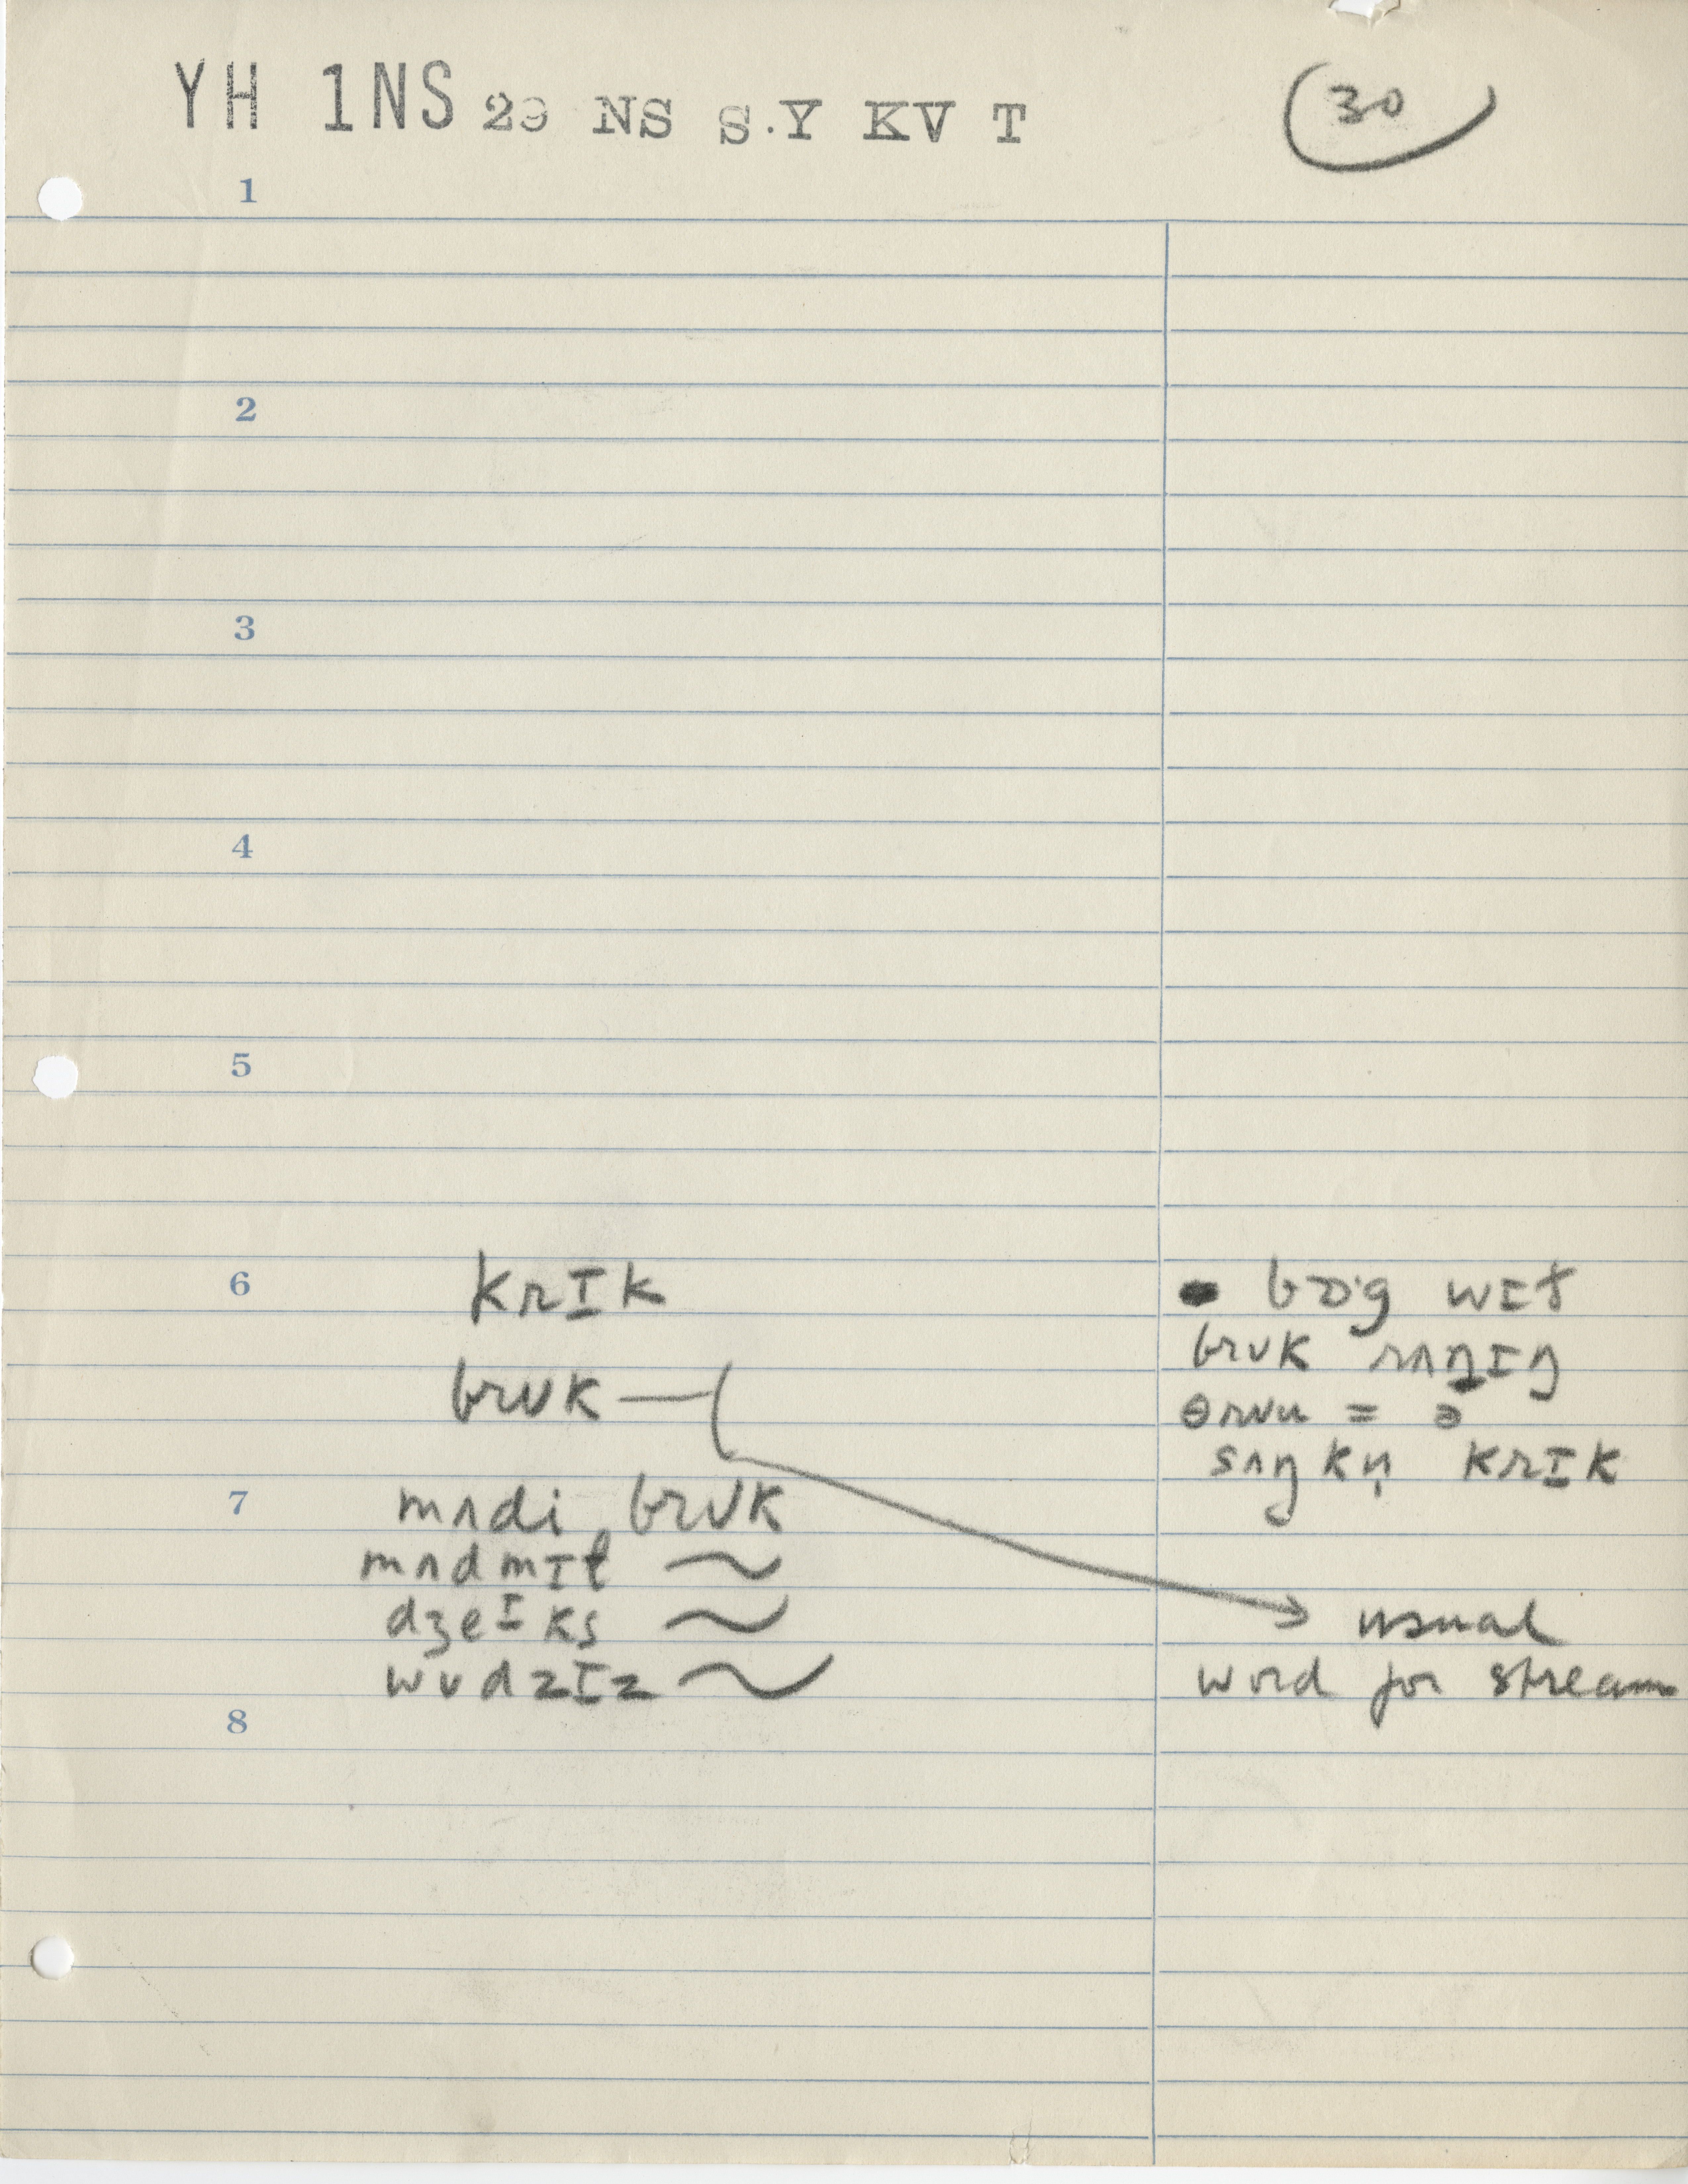 YH 1NS 29 NS S.Y KV T
30
1
2
3
4
5
6 krIk
brʊk
7 mʌdi brʊk
mʌdmɪl ~
dʒeɪks ~
wʊdzɪz ~
8
bɒ·g wɪt
brʊk rʌnɪŋ
θruu = ə
sʌŋkn̩ krɪk
usual
word for stream